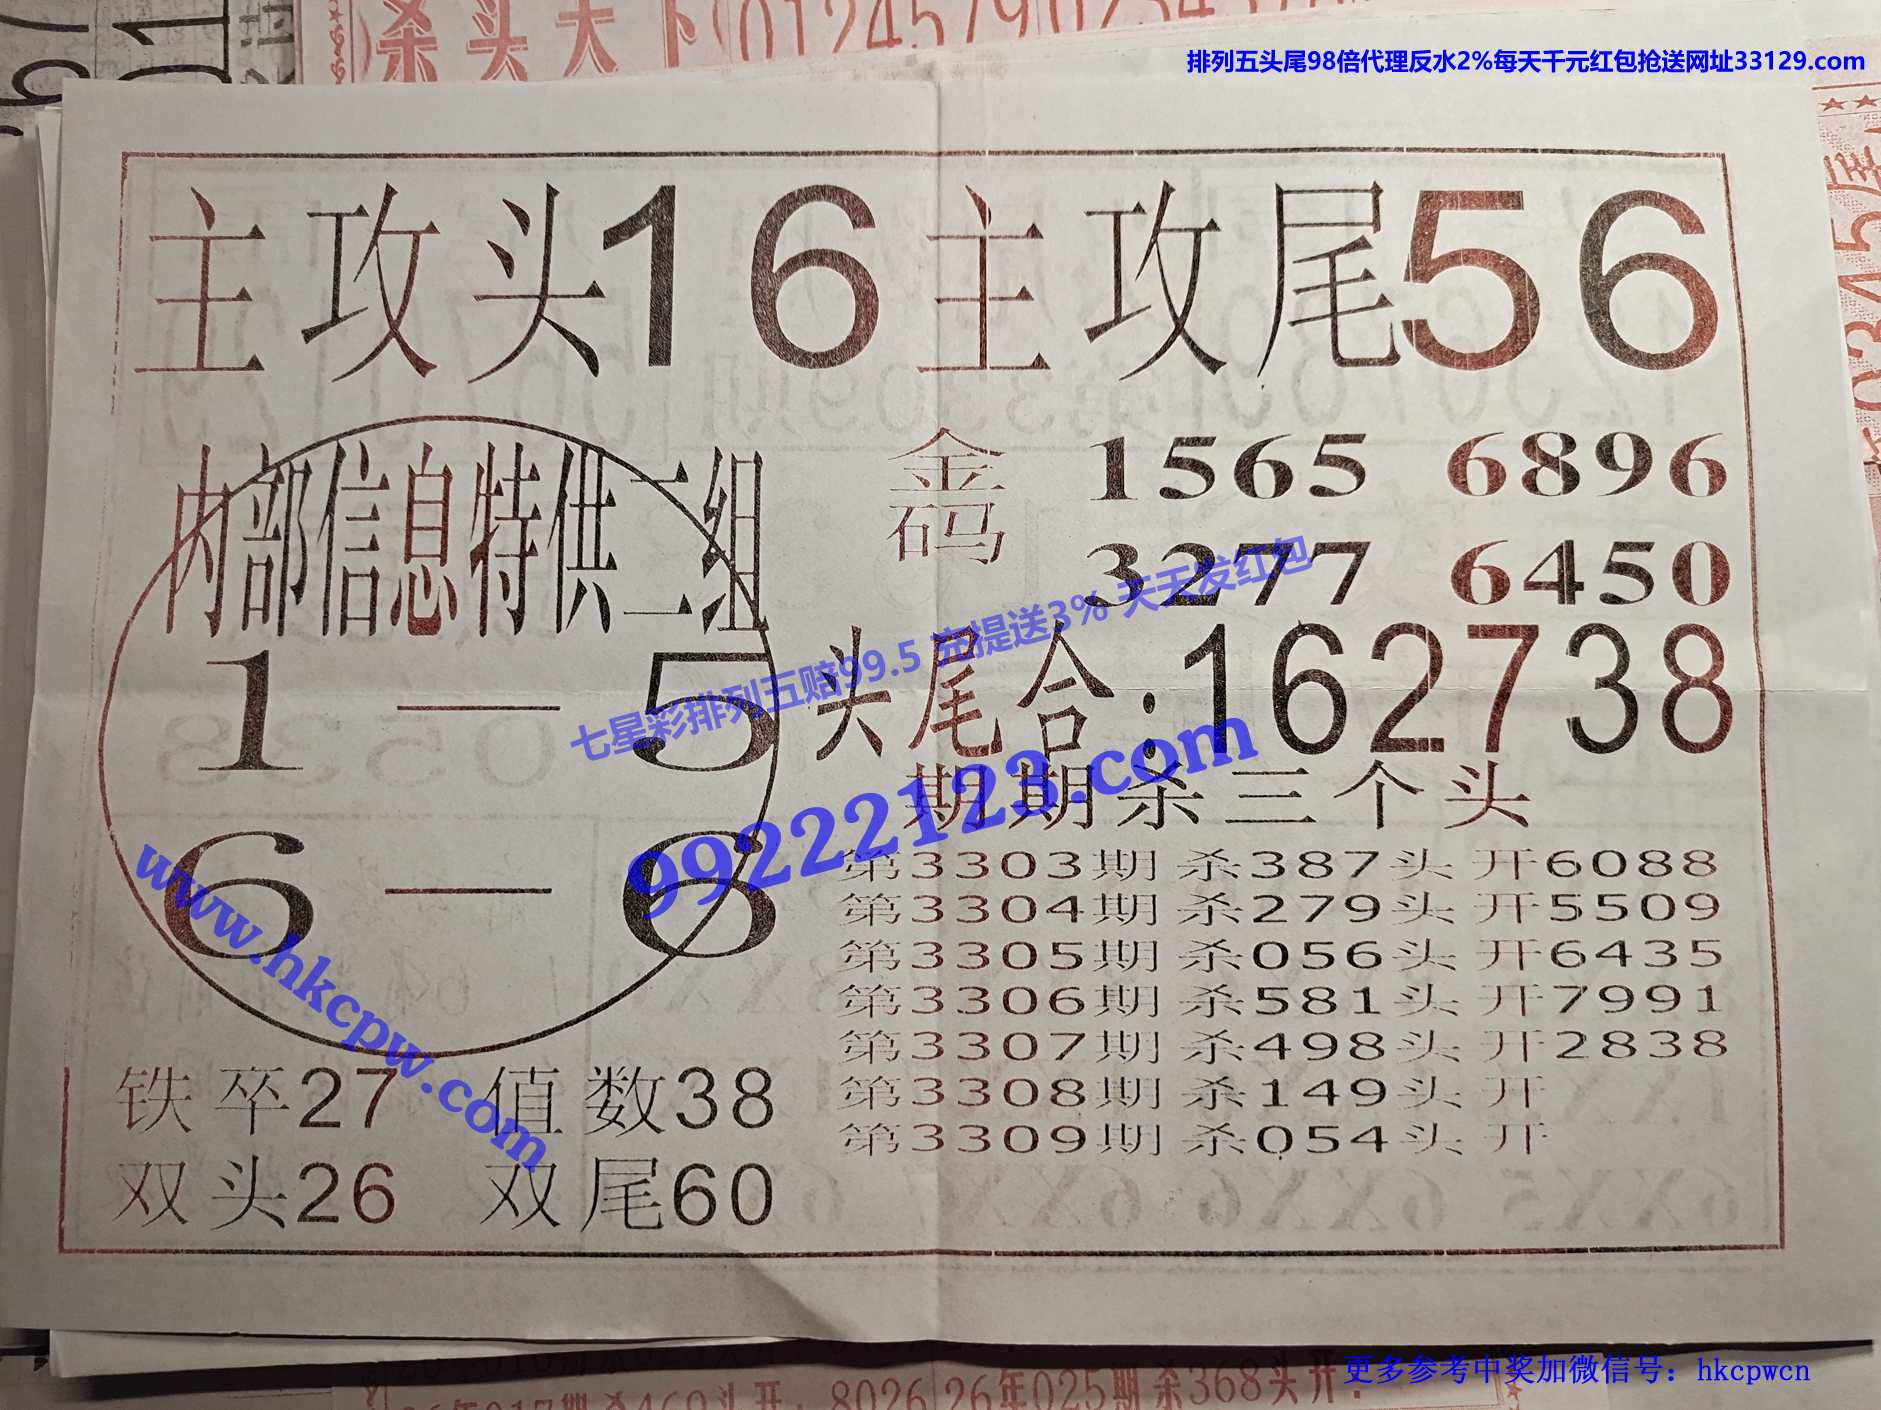 杀头天下
排列五头尾98倍代理反水2%每天千元红包抢送网址33129.com
主攻头16 主攻尾56
内部信息特供二组
1—5
6—6
金码
1565 6896
3277 6450
七星彩排列五赔99.5 充提送3% 天天发红包
头尾合:162738
99222123.com
www.hkcpw.com
期期杀三个头
第3303期 杀387头 开6088
第3304期 杀279头 开5509
第3305期 杀056头 开6435
第3306期 杀581头 开7991
第3307期 杀498头 开2838
第3308期 杀149头 开
第3309期 杀054头 开
铁卒27 值数38
双头26 双尾60
更多参考中奖加微信号: hkcpwcn
8026 26年025期杀368头开: